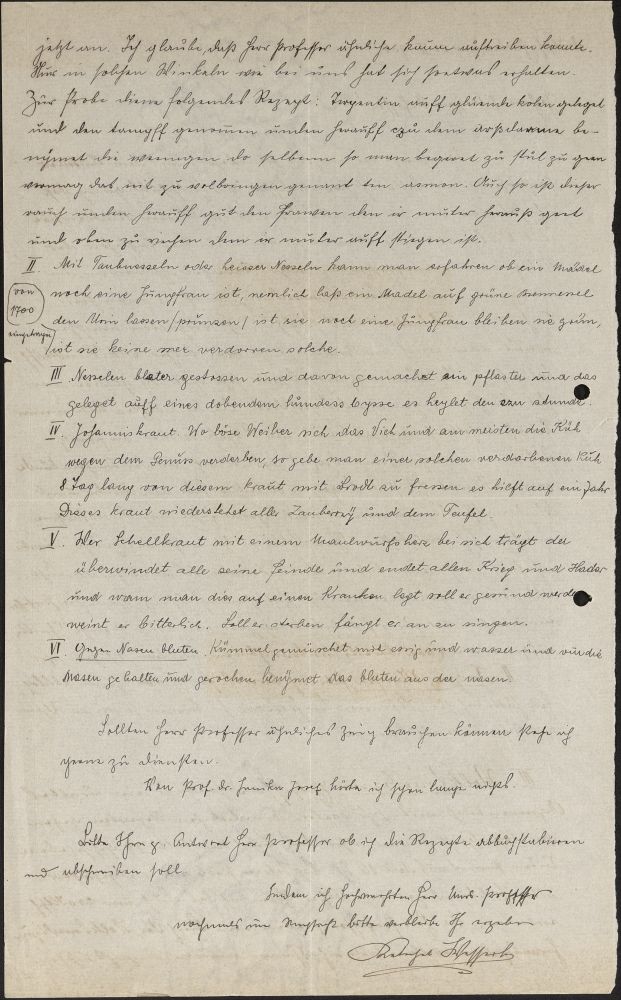 jetzt an. Ich glaube, daß Herr Professor ähnliche kaum auftreiben konnte.
Nur in solchen Winkeln wie bei uns hat sich soetwas erhalten.
Zur Probe diene folgendes Rezept: Terpentin auff glüende kolen geleget
und den tampff genomen unden herauff czu dem arßdarme be-
nÿmet die wenngen do selbenn so man begeret zu stul zu geen
vermag das nit zu volbringen genant ten asmon. Auch so ist dieser
rauch unden herauff gut den frawen den ir muter herauß geet
und oben zu riechen dem ir muter auff stiegen ist.
II. Mit Taubnesseln oder heisser Nesseln kann man erfahren ob ein Mädel
von 1700 eingetragen
noch eine Jungfrau ist, nemlich lass ein Madel auf grüne Brennessel
den Urin lassen /prunzen/ ist sie noch eine Jungfrau bleiben sie grün,
ist sie keine mer verdorren solche.
III Nesselen bleter gestossen und davon gemachet ein pflaster und das
geleget auff eines dobendem hundess bysse es heylet den
IV. Johanniskraut. Wo böse Weiber sich das Vieh und am meisten die Küh
wegen dem Genuss verderben, so gebe man einer solchen verdorbenen Kuh
8 Tag lang von diesem Kraut mit Brodt zu fressen es hilft auf ein Jahr
Dieses kraut niederstehet aller Zauberey und dem Teufel.
V. Wer Schellkraut mit einem Maulwurfsherz bei sich trägt der
überwindet alle seine Feinde und endet allen Krieg und Hader
und wann man dies auf einen Kranken legt soll er gesund werden
weint er bitterlich. Soll er sterben fängt er an zu singen.
VI. Gegen Nasen bluten. Kümmel gemüschet mit essig und wasser und vür die
Nasen gehalten und gerochen benÿmet das bluten aus der nasen.
Sollten Herr Professor ähnliches Zeug brauchen können stehe ich
gerne zu Diensten.
Von Prof. Dr. Hanika Josef hörte ich schon lange nichts.
Bitte Ihre g. Antwort Herr Professor ob ich die Rezepte abbuchstabieren
und abschreiben soll.
Indem ich hochverehrten Herr Univ. Professor
nochmals um Nachsicht bitte verbleibe Ihr ergeben